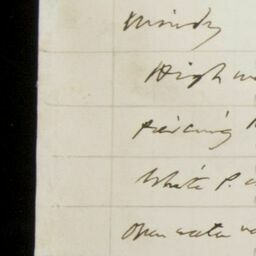 Windy
High
piercing
White P.
Open water